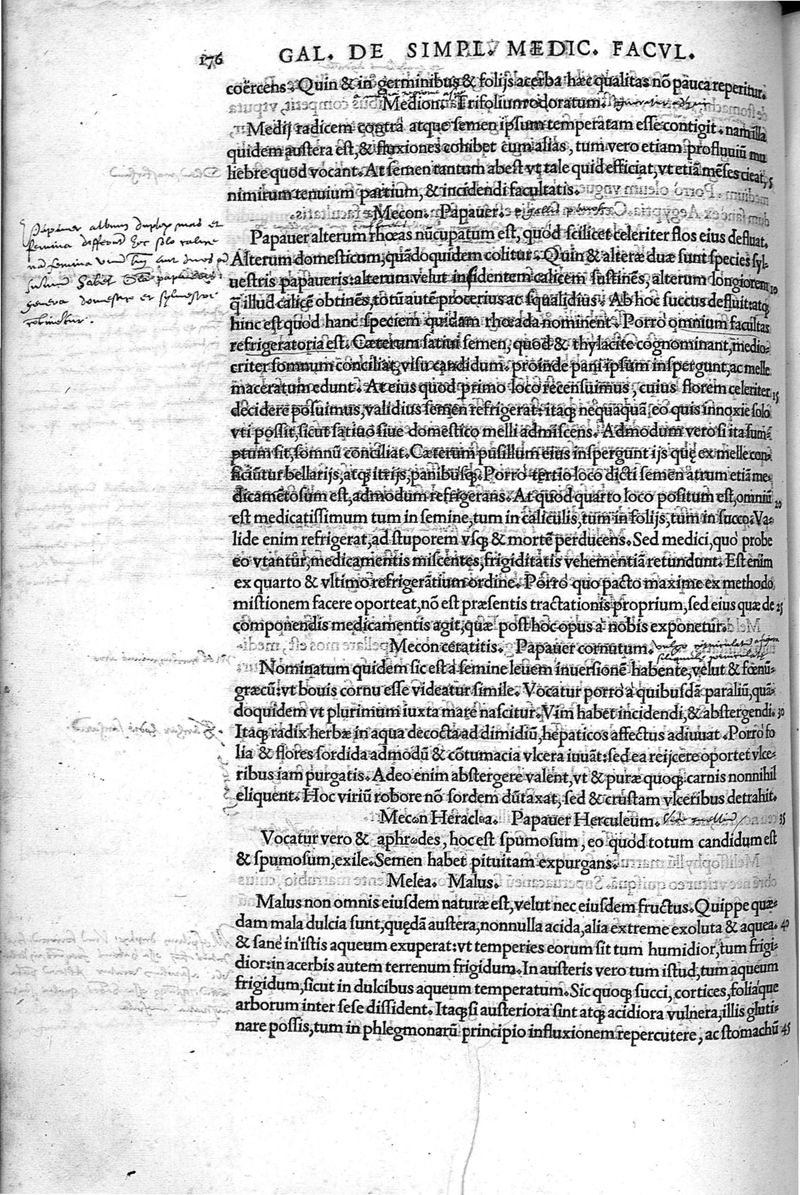 176 GAL. DE SIMPL. MÆDIC. FACVL.
coërcens. Quin & in germinibus & folijs acerba hæc qualitas nõ pauca reperitur.
Medion. Trifolium odoratum.
Medij radicem contra atque semen ipsum temperatam esse contigit. nam illa
quidem austera est, & fluxiones cohibet cum alias, tum vero etiam profluuiũ mu
liebre quod vocant. At semen tantum abest vt tale quid efficiat, vt etiã mẽses cieat, 5
nimirum tenuium partium, & incidendi facultatis.
Mecon. Papauer.
Papauer album duplex mas et
femina
Papauer alterum rhœas nũcupatum est, quod scilicet celeriter flos eius defluat,
Alterum domesticum, quãdoquidem colitur. Quin & alteræ duæ sunt species syl-
uestris papaueris: alterum velut insidentem calicem sustinẽs, alterum longiorem 10
q̃ illud calicẽ obtinẽs, totũ autẽ procerius ac squalidius. Ab hoc succus defluit atq;
hinc est quod hanc speciem quidam rhœada nominent. Porro omnium facultas
refrigeratoria est. Cæterum satiui semen, quod & thylacite cognominant, medio-
criter somnum conciliat, visu candidum. proinde pani ipsum inspergunt, ac melle
maceratum edunt. At eius quod primo loco recensuimus, cuius florem celeriter 15
decidere posuimus, validius semen refrigerat: itaq; nequaquã eo quis innoxie solo
vti possit, sicut satiuo siue domestico melli admiscens. Admodum vero si ita sum-
ptum sit, somnũ conciliat. Cæterum pusillum eius inspergunt ijs quę ex melle con
ficiũtur bellarijs, atq; itrijs, panibusq;. Porro tertio loco dicti semen atrum etiã me-
dicamẽtosum est, admodum refrigerans. At quod quarto loco positum est, omniũ 20
est medicatissimum tum in semine, tum in caliculis, tum in folijs, tum in succo. Va-
lide enim refrigerat, ad stuporem vsq; & mortẽ perducens. Sed medici, quo probe
eo vtantur, medicamentis miscentes, frigiditatis vehementiã retundunt. Est enim
ex quarto & vltimo refrigerãtium ordine. Porro quo pacto maxime ex methodo
mistionem facere oporteat, nõ est præsentis tractationis proprium, sed eius quæ de 25
componendis medicamentis agit, quæ post hoc opus a nobis exponetur.
Mecon ceratitis. Papauer cornutum.
Nominatum quidem sic est a semine leuem inuersionẽ habente, velut & fœnũ-
græcũ: vt bouis cornu esse videatur simile. Vocatur porro a quibusdã paraliũ, quã-
doquidem vt plurimum iuxta mare nascitur. Vim habet incidendi, & abstergendi. 30
Itaq; radix herbæ in aqua decocta ad dimidiũ, hepaticos affectus adiuuat. Porro fo
lia & flores sordida admodũ & cõtumacia vlcera iuuãt: sed ea reijcere oportet vlce-
ribus iam purgatis. Adeo enim abstergere valent, vt & puræ quoq; carnis nonnihil
eliquent. Hoc viriũ robore nõ sordem dũtaxat, sed & crustam vlceribus detrahit.
Mecon Heraclea. Papauer Herculeum. 35
Vocatur vero & aphrodes, hoc est spumosum, eo quod totum candidum est
& spumosum, exile. Semen habet pituitam expurgans.
Melea. Malus.
Malus non omnis eiusdem naturæ est, velut nec eiusdem fructus. Quippe quæ-
dam mala dulcia sunt, quędã austera, nonnulla acida, alia extreme exoluta & aquea. 40
& sane in istis aqueum exuperat: vt temperies eorum sit tum humidior, tum frigi-
dior: in acerbis autem terrenum frigidum. In austeris vero tum istud, tum aqueum
frigidum, sicut in dulcibus aqueum temperatum. Sic quoq; succi, cortices, foliaque
arborum inter sese dissident. Itaq; si austeriora sint atq; acidiora vulnera, illis gluti-
nare possis, tum in phlegmonarũ principio influxionem repercutere, ac stomachũ 45